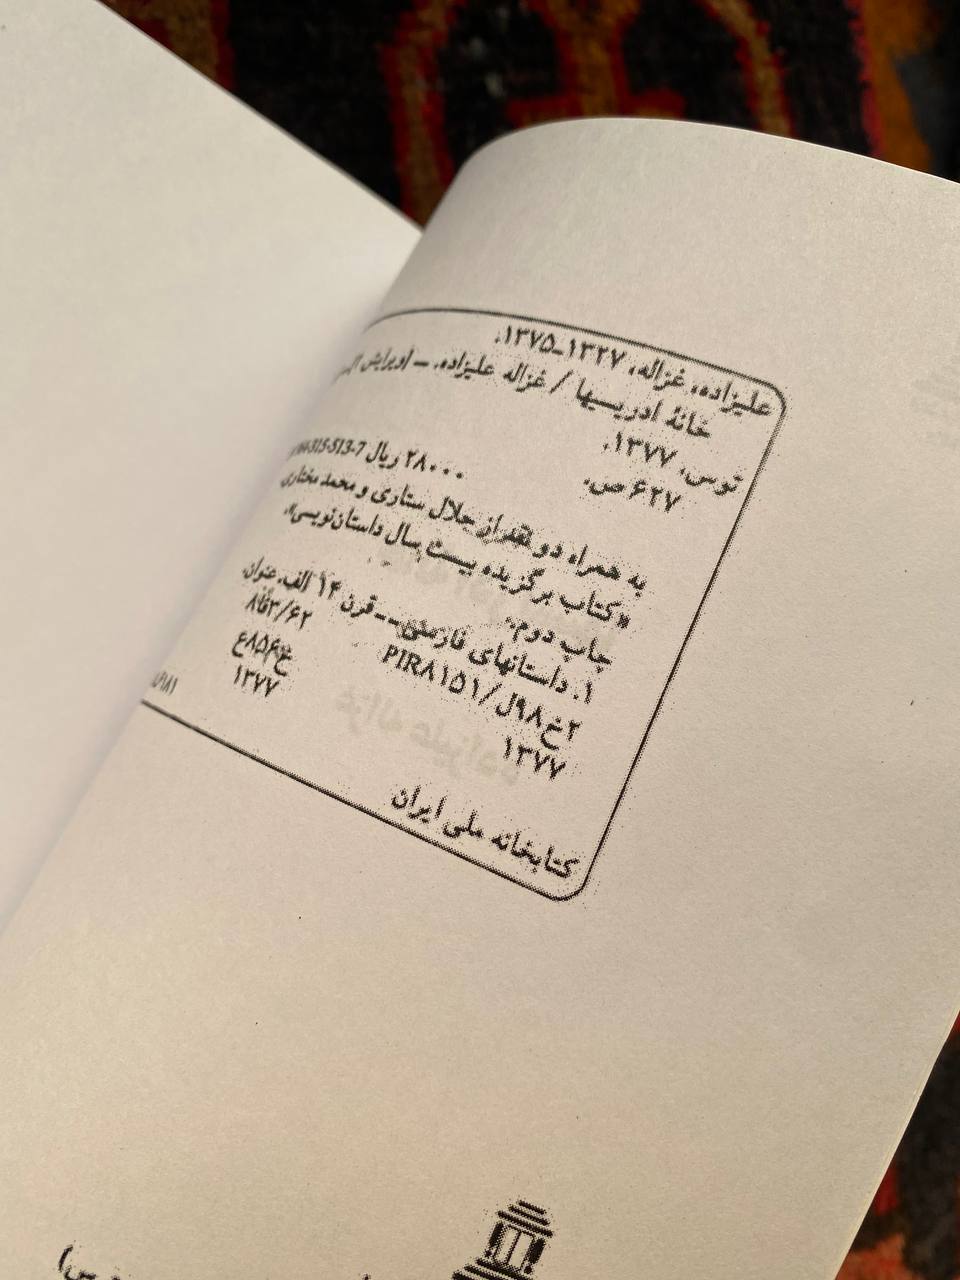 علیزاده، غزاله، ۱۳۲۷-۱۳۷۵.
خانهٔ ادریسیها / غزاله علیزاده. _ [ویرایش
توس، ۱۳۷۷.
۶۲۷ ص.
۲۸۰۰۰ ریال 315-513-7
به همراه دو نقد از جلال ستاری و محمد مختاری.
«کتاب برگزیده بیست سال داستان‌نویسی».
چاپ دوم.
۱. داستانهای فارسی -- قرن ۱۴ الف. عنوان.
۲خ۹۸ل/PIR۸۱۵۱ ۸فا۳/۶۲
۱۳۷۷ خ۸۵۶ع
۱۳۷۷
کتابخانه ملی ایران